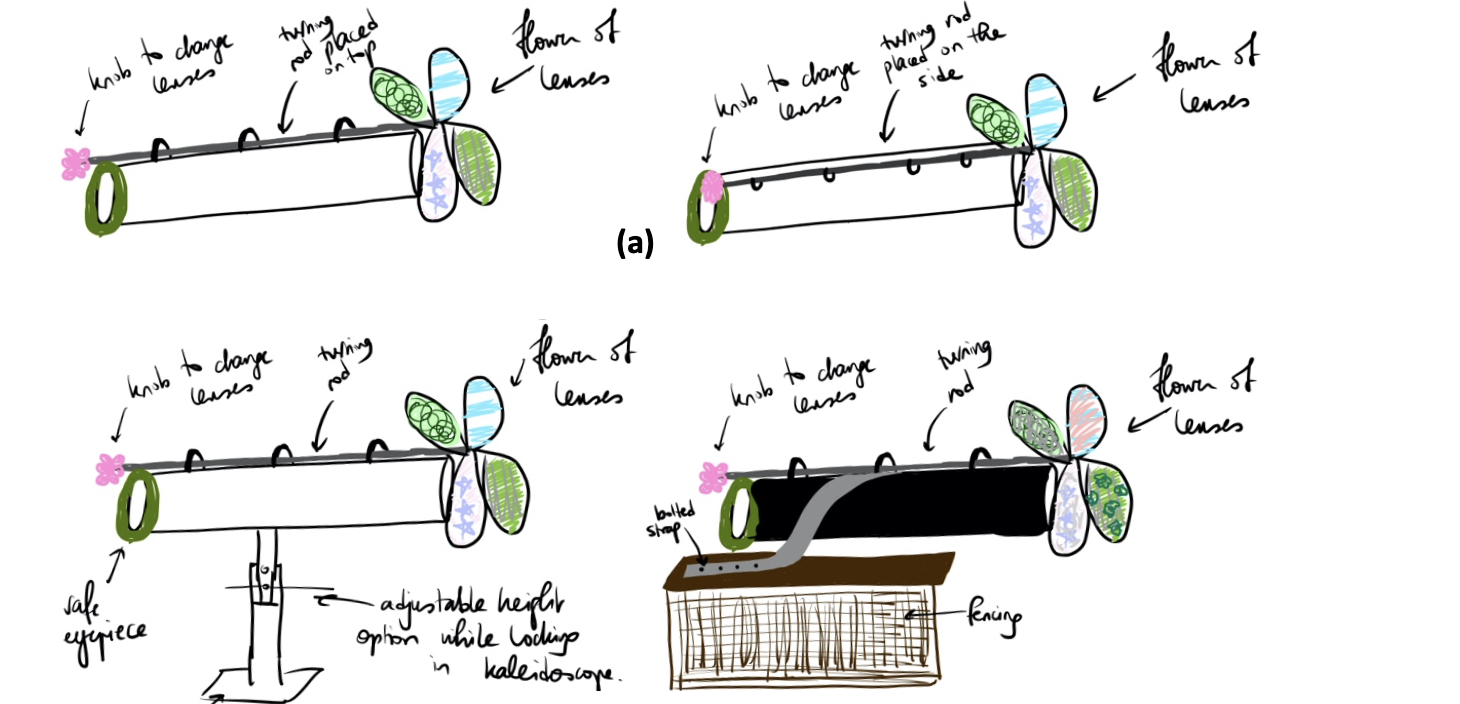 knob to change
lenses
turning
rod placed
on top
flower of
lenses
knob to change
lenses
turning rod
placed on the
side
flower of
lenses
(a)
knob to change
lenses
turning
rod
flower of
lenses
safe
eyepiece
adjustable height
option while looking
in kaleidoscope.
knob to change
lenses
turning
rod
flower of
lenses
bolted
strap
fencing